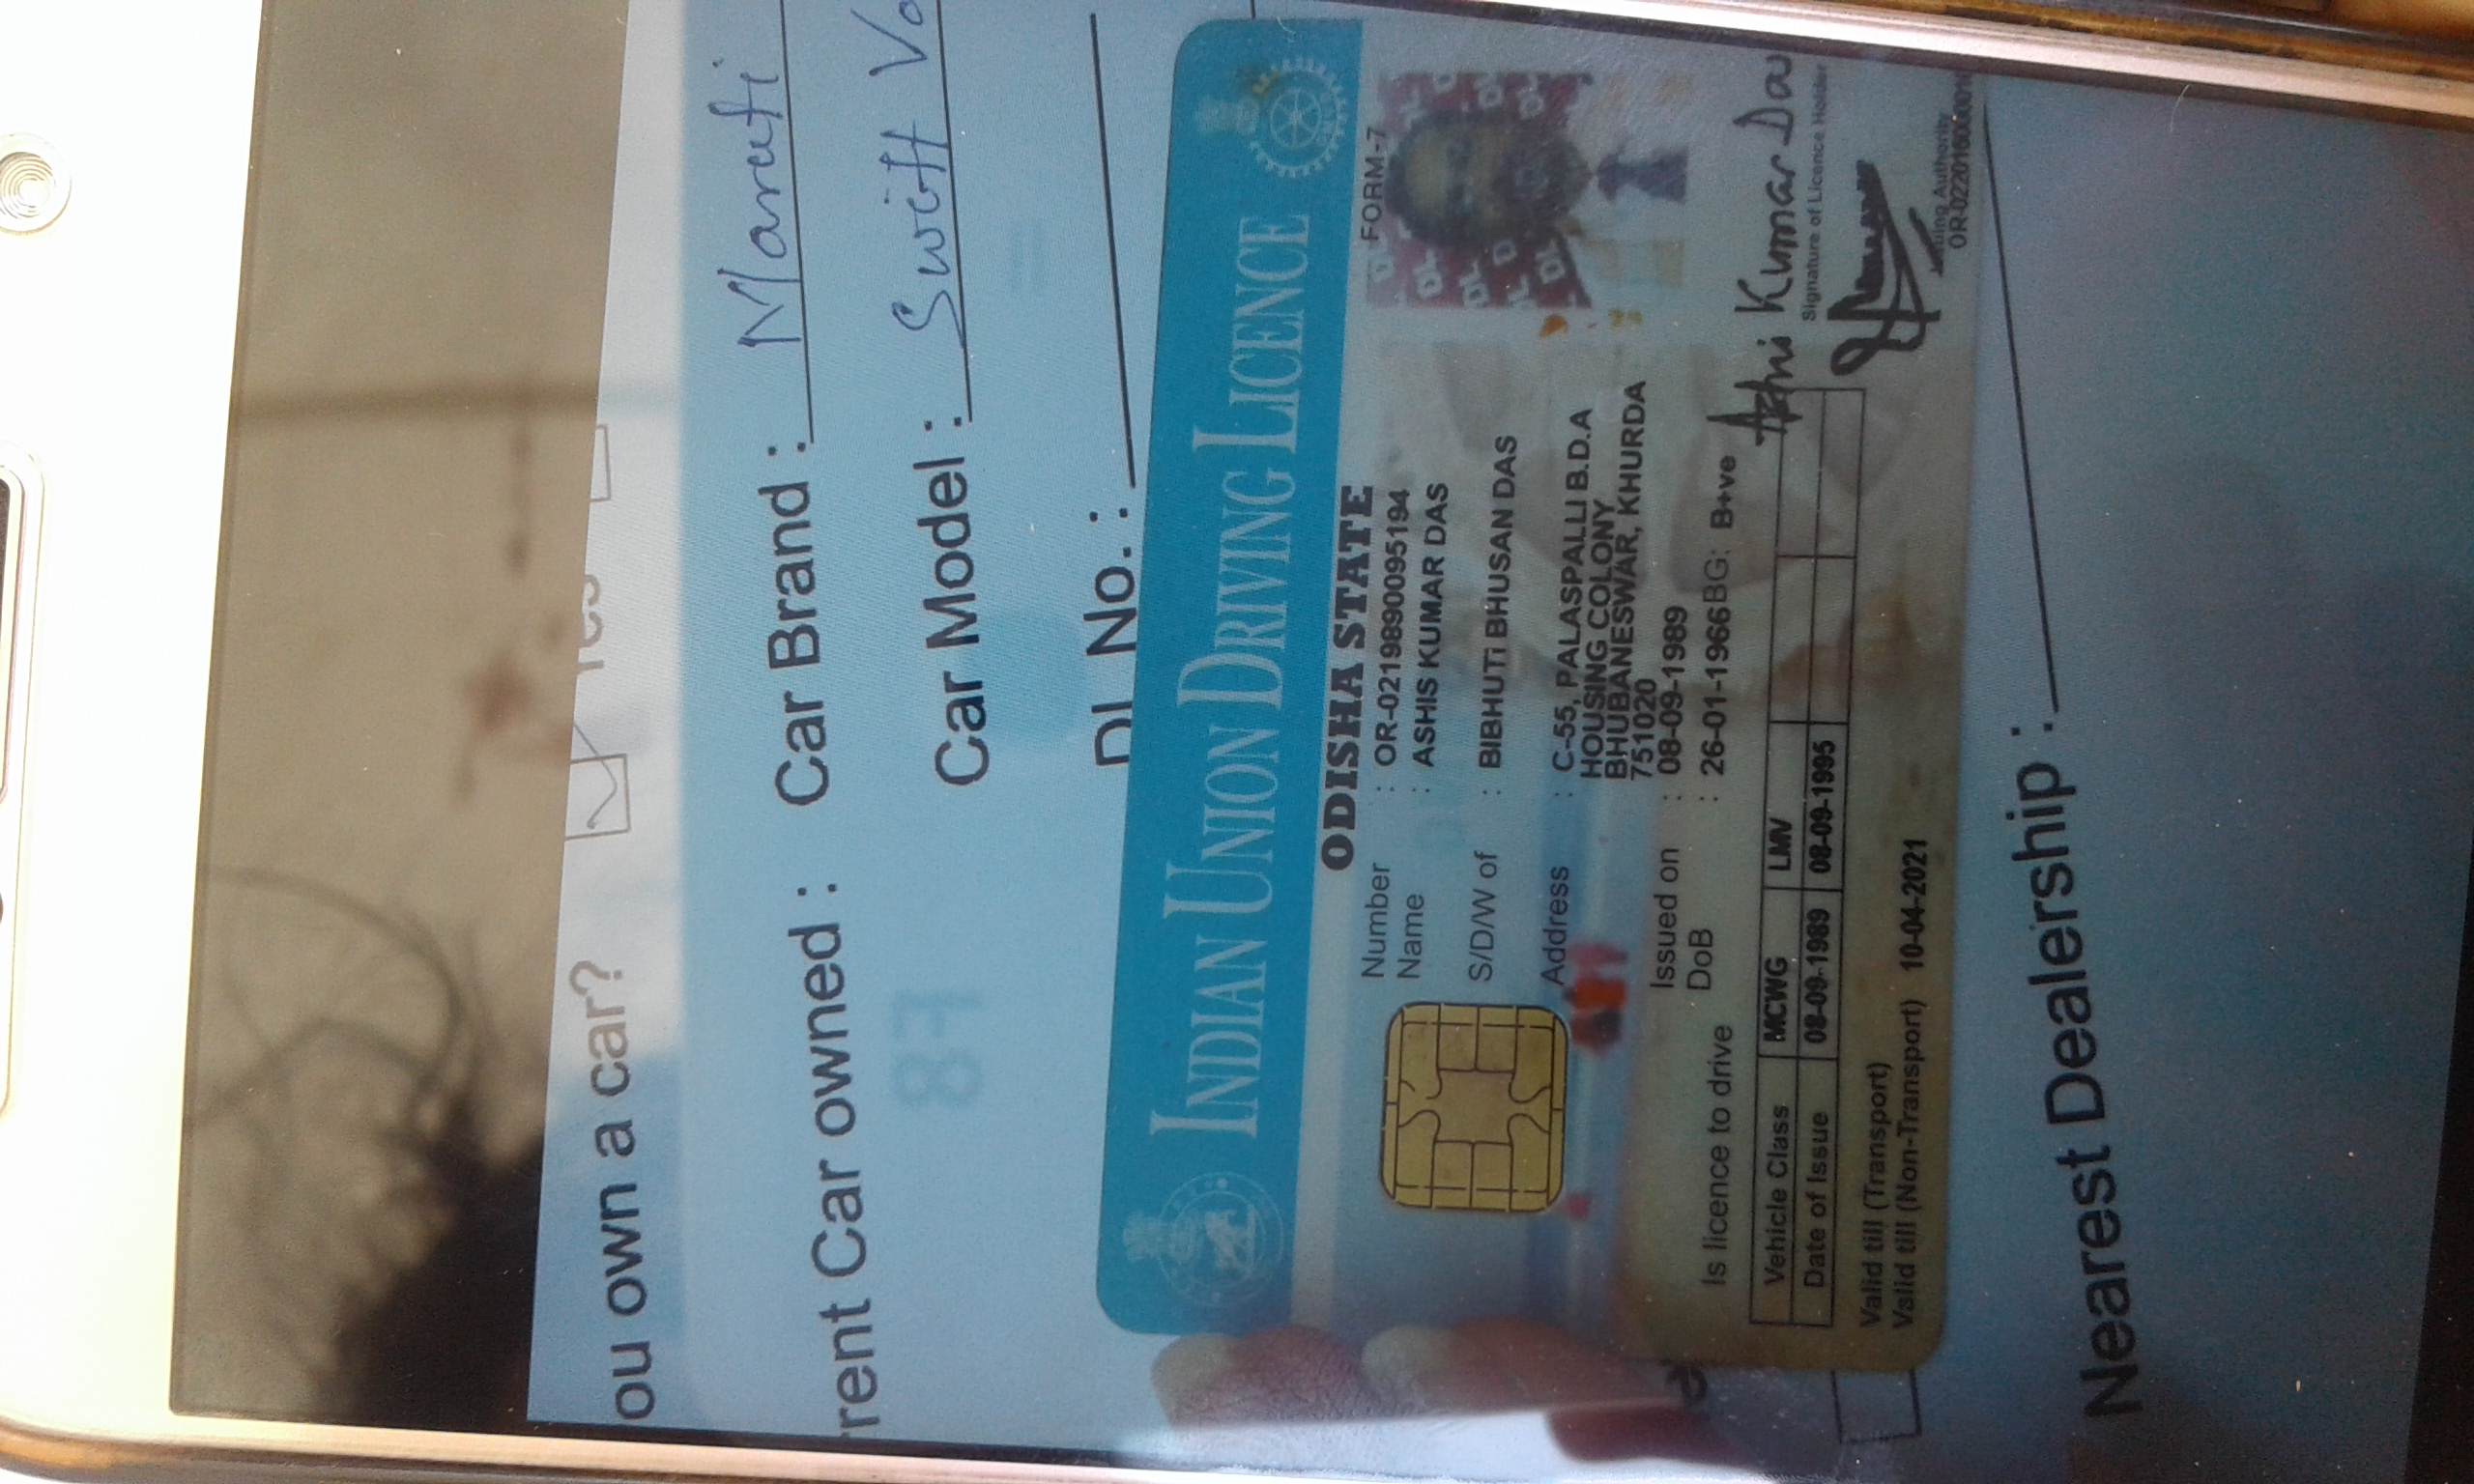 ou own a car? Yes
rent Car owned : Car Brand : Maruti
87
Car Model : Swift
DL No. :
INDIAN UNION DRIVING LICENCE
ODISHA STATE
FORM-7
Number : OR-0219890095194
Name : ASHIS KUMAR DAS
S/D/W of : BIBHUTi BHUSAN DAS
Address : C-55, PALASPALLI B.D.A
HOUSING COLONY
BHUBANESWAR, KHURDA
751020
Issued on : 08-09-1989
DoB : 26-01-1966 BG: B+ve
Is licence to drive
Vehicle Class MCWG LMV
Date of Issue 08-09-1989 08-09-1995
Kumar Das
Signature of Licence Holder
Valid till (Transport)
Valid till (Non-Transport) 10-04-2021
Issuing Authority
Nearest Dealership :